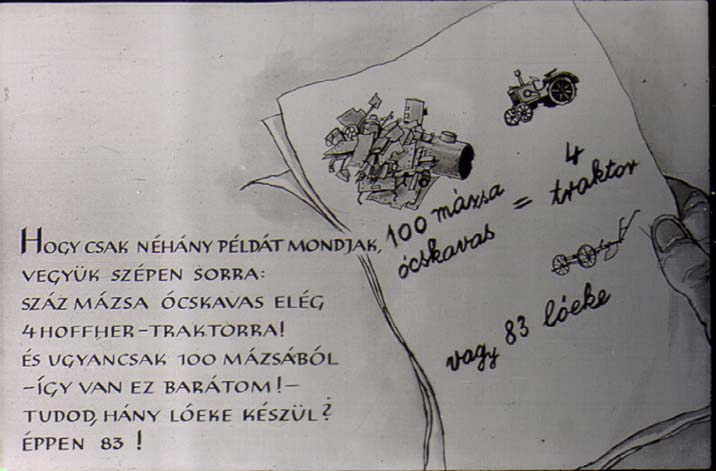 HOGY CSAK NÉHÁNY PÉLDÁT MONDJAK,
VEGYÜK SZÉPEN SORRA:
SZÁZ MÁZSA ÓCSKAVAS ELÉG
4 HOFFHER-TRAKTORRA!
ÉS UGYANCSAK 100 MÁZSÁBÓL
-ÍGY VAN EZ BARÁTOM!-
TUDOD, HÁNY LÓEKE KÉSZÜL?
ÉPPEN 83 !
100 mázsa
ócskavas = 4
traktor
vagy 83 lóeke